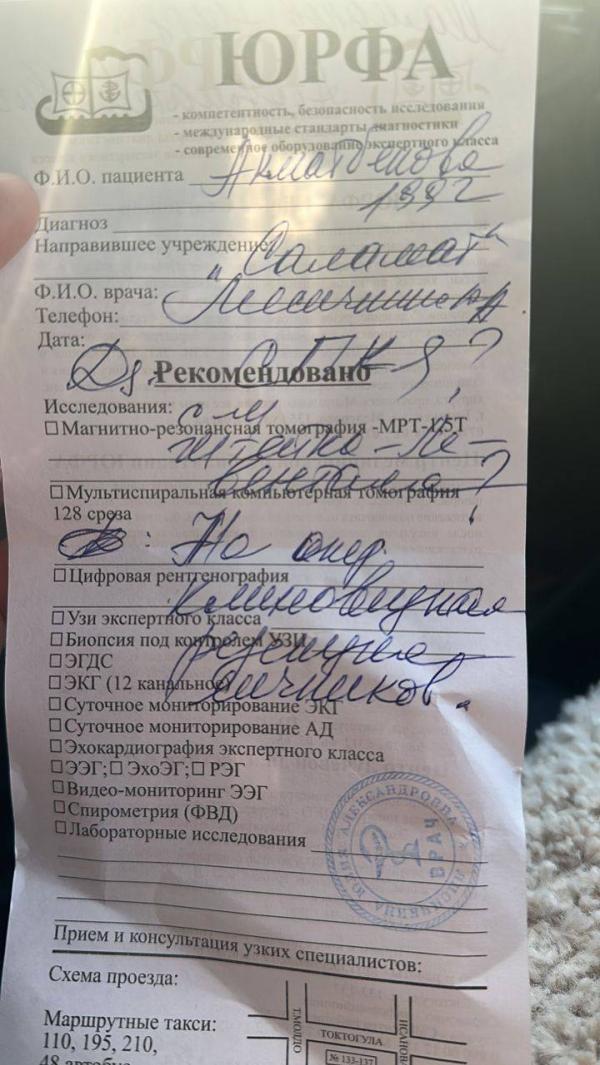 ЮРФА
- компетентность, безопасность исследования
- международные стандарты диагностики
- современное оборудование экспертного класса
Ф.И.О. пациента Акматбекова
1992
Диагноз
Направившее учреждение: "Саламат"
Ф.И.О. врача:
Телефон:
Дата:
Ds. СПКЯ?
Рекомендовано
Исследования:
С-м
Магнитно-резонансная томография -МРТ-1,5Т
Штейна-Ле-
венталя?
Мультиспиральная компьютерная томография
128 среза
: На опер.
Цифровая рентгенография
клиновидная
Узи экспертного класса
Биопсия под контролем УЗИ
резекция
ЭГДС
яичников.
ЭКГ (12 канальное)
Суточное мониторирование ЭКГ
Суточное мониторирование АД
Эхокардиография экспертного класса
ЭЭГ; ЭхоЭГ; РЭГ
Видео-мониторинг ЭЭГ
Спирометрия (ФВД)
Лабораторные исследования
ЮЛИЯ АЛЕКСАНДРОВНА
ВРАЧ
Прием и консультация узких специалистов:
Схема проезда:
Маршрутные такси:
110, 195, 210,
Т.МОЛДО
ТОКТОГУЛА
№ 133-137